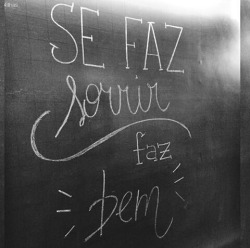 SE FAZ
sorrir
faz
bem